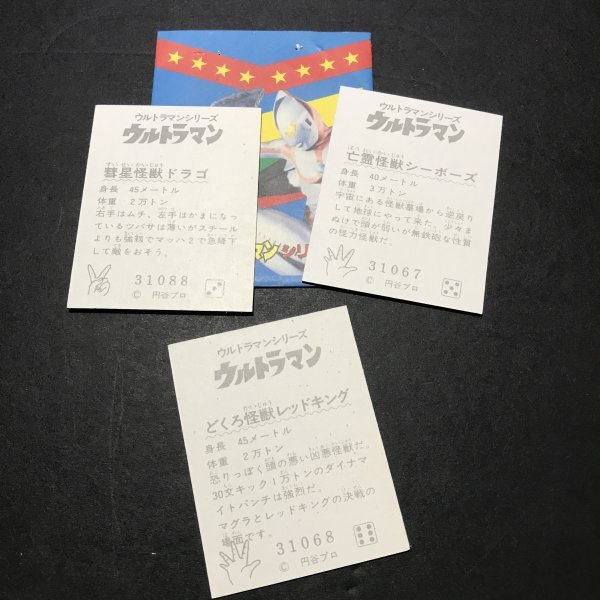 ウルトラマンシリーズ
ウルトラマン
すいせいかいじゅう
彗星怪獣ドラゴ
身長 45メートル
体重 2万トン
右手はムチ、左手はかまになっ
ているツバサは薄いがスチール
よりも強靱でマッハ2で急降下
して敵をおそう。
31088
© 円谷プロ
ウルトラマンシリーズ
ウルトラマン
ぼうれいかいじゅう
亡霊怪獣シーボーズ
身長 40メートル
体重 3万トン
宇宙にある怪獣墓場から逆戻り
して地球にやって来た。少々ま
ぬけで頭が弱いが無鉄砲な性質
の怪力怪獣だ。
31067
© 円谷プロ
マンシリ
ウルトラマンシリーズ
ウルトラマン
かいじゅう
どくろ怪獣レッドキング
身長 45メートル
体重 2万トン
恐りっぽく頭の悪い凶悪怪獣だ。
30文キック1万トンのダイナマ
イトパンチは強烈だ。
マグラとレッドキングの決戦の
場面です。
31068
© 円谷プロ